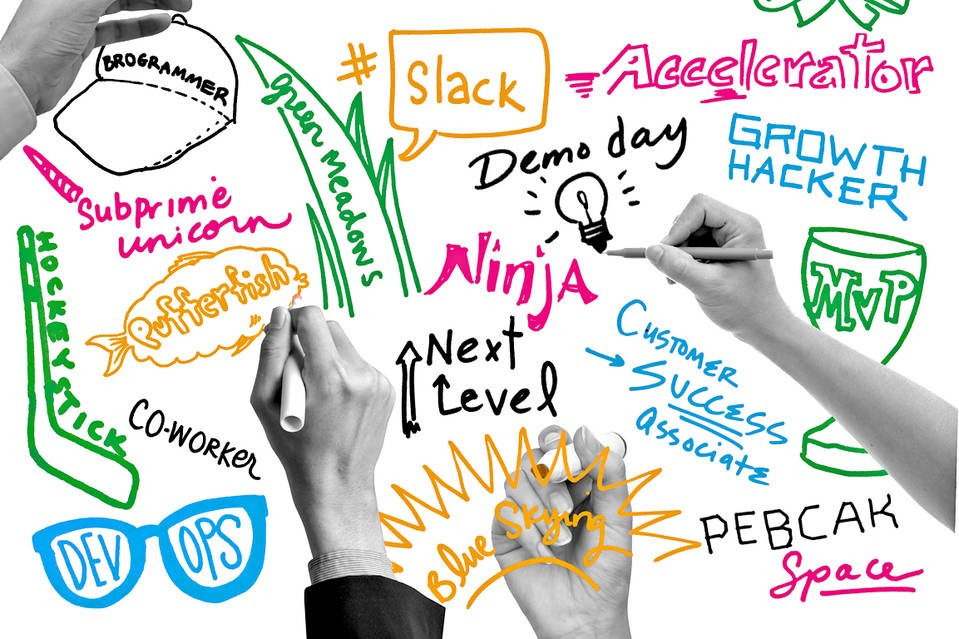 BROGRAMMER
#
Slack
Accelerator
Green Meadows
Demo day
GROWTH
HACKER
Subprime
unicorn
HOCKEY STICK
Pufferfish
Ninja
MVP
Next
Level
CUSTOMER
SUCCESS
Associate
CO-WORKER
Blue Skying
DEV OPS
PEBCAK
Space